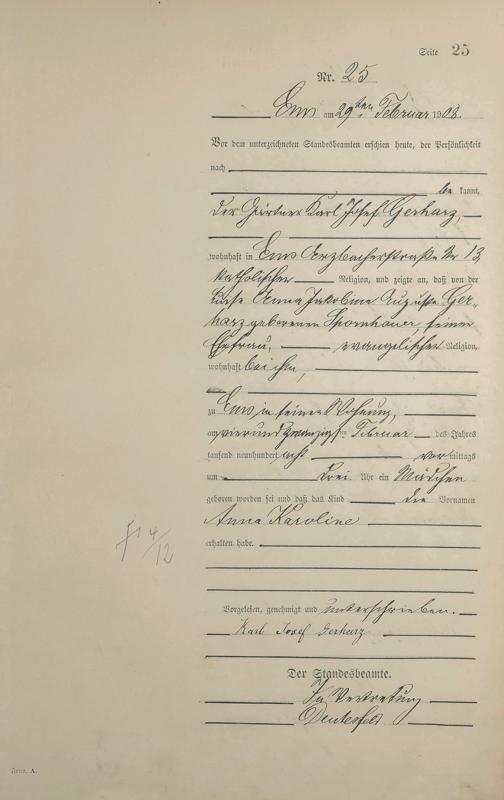 Seite 25
Nr. 25
Ems am 29ten Februar 1908.
Vor dem unterzeichneten Standesbeamten erschien heute, der Persönlichkeit
nach
be kannt,
der Gärtner Karl Josef Gerharz,
wohnhaft in Ems Arzbacherstraße Nr 13
katholischer Religion, und zeigte an, daß von der
Anna Jakobine Auguste Ger-
harz geborenen Spornhauer, seiner
Ehefrau, evangelischer Religion,
wohnhaft bei ihm,
zu Ems in seiner Wohnung,
am vierundzwanzigsten Februar des Jahres
tausend neunhundert acht vor mittags
um drei Uhr ein Mädchen
geboren worden sei und daß das Kind die Vornamen
Anna Karoline
erhalten habe.
Vorgelesen, genehmigt und unterschrieben.
Karl Josef Gerharz
Der Standesbeamte.
In Vertretung
Form. A.